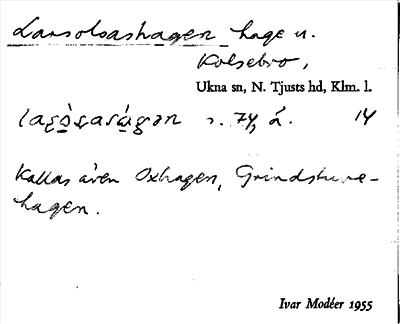 Larsolsashagen hage u.
Kolsebro,
Ukna sn, N. Tjusts hd, Klm. l.
s. 74, å. 14
Kallas även Oxhagen, Grindstuve-
hagen.
Ivar Modéer 1955